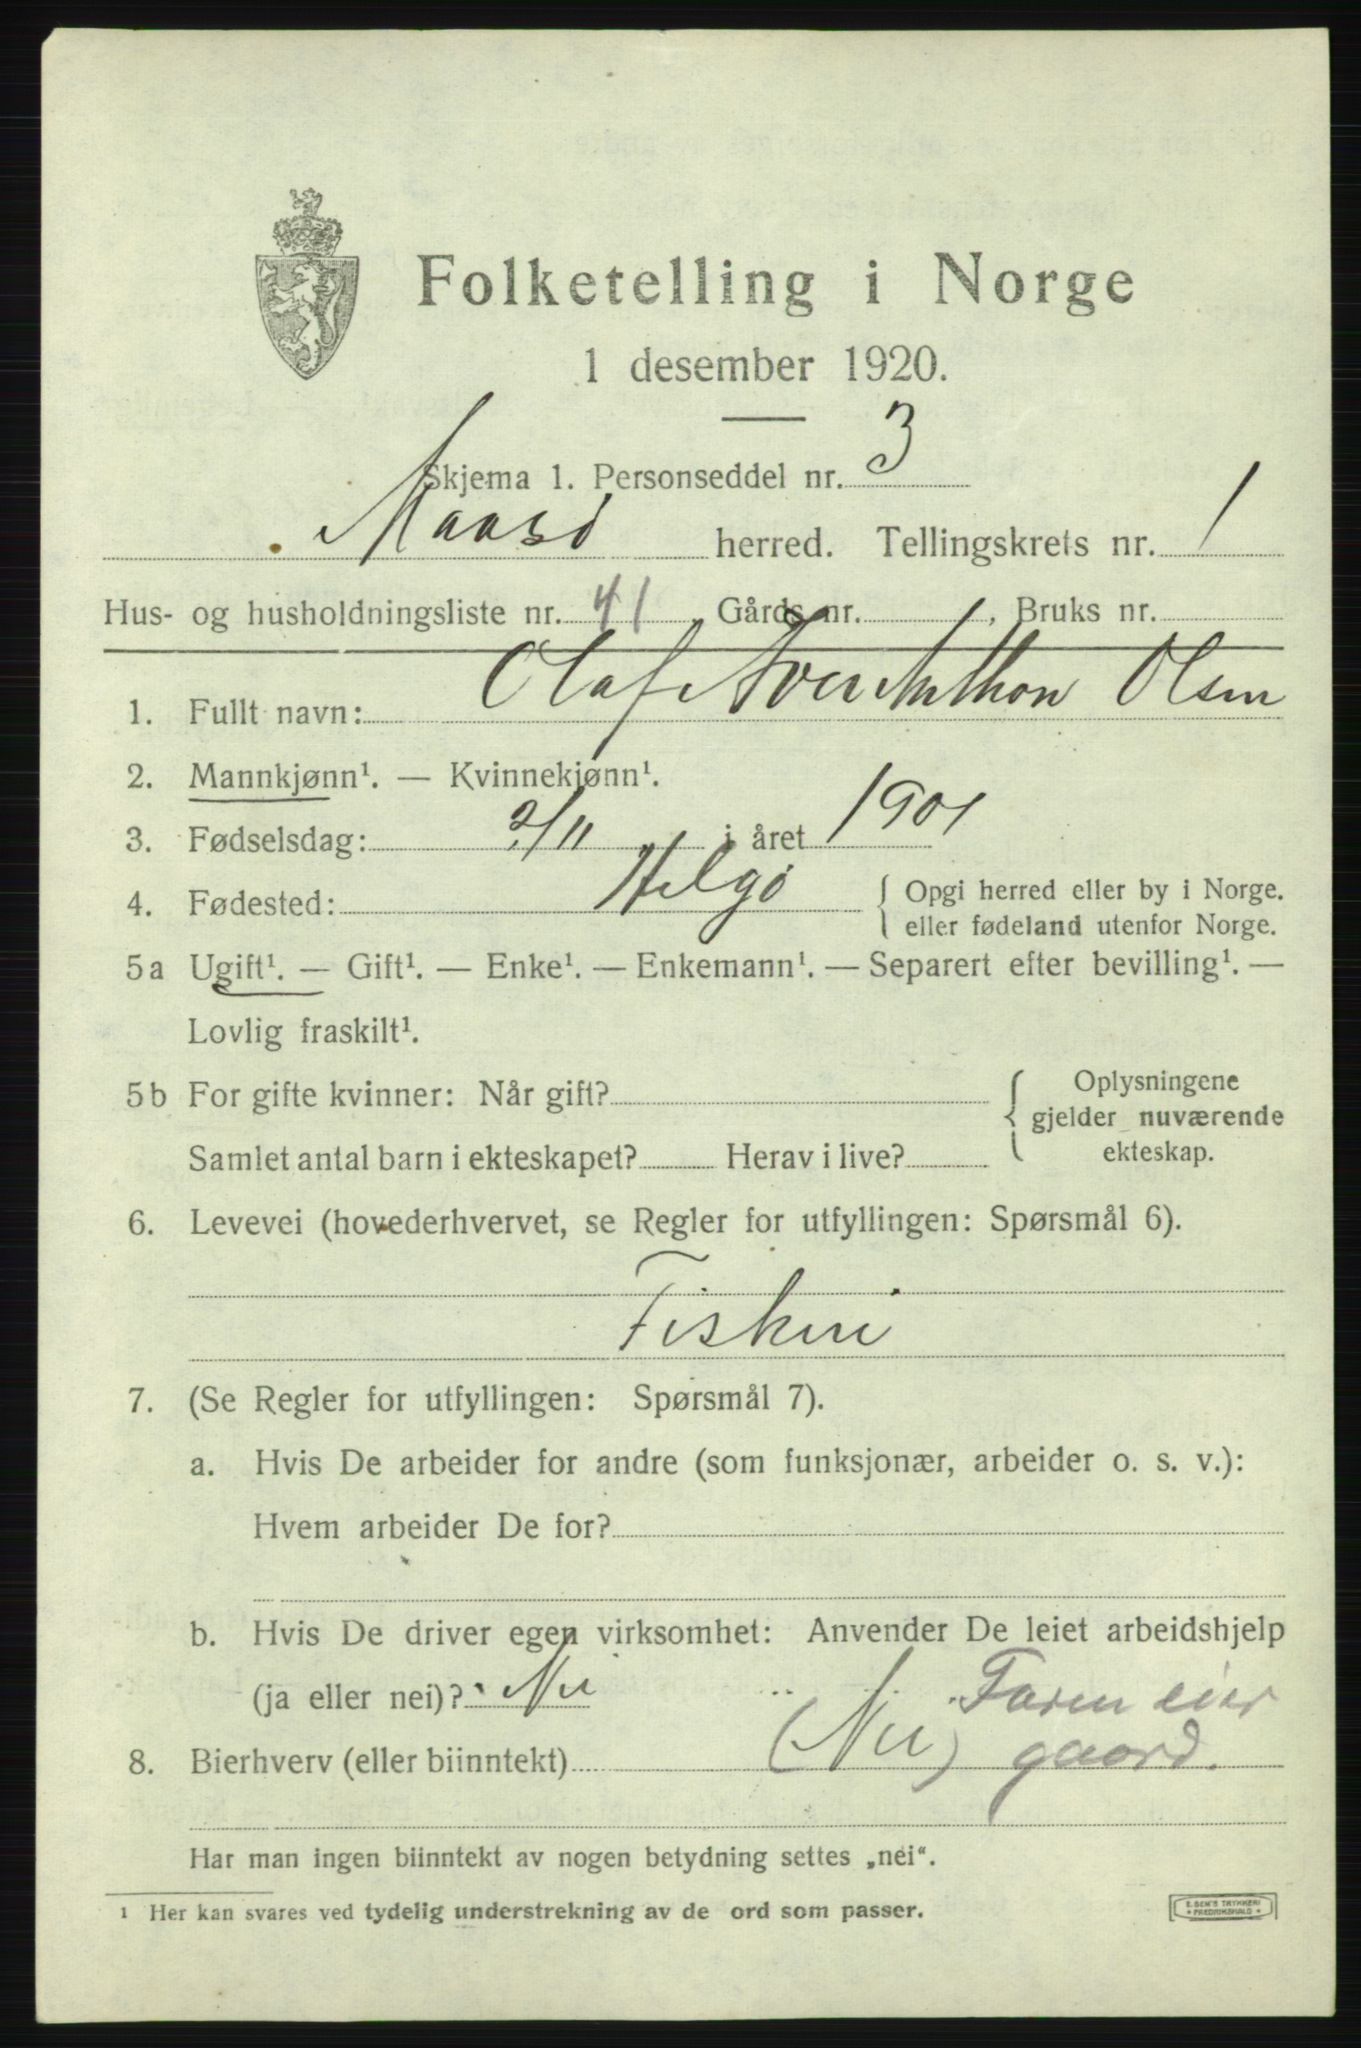 Folketelling i Norge
1 desember 1920.
Skjema 1. Personseddel nr. 3
Maasö herred. Tellingskrets nr. 1
Hus- og husholdningsliste nr. 41 Gårds nr. , Bruks nr.
1. Fullt navn: Olaf Anthon Olsen
2. Mannkjønn¹. — Kvinnekjønn¹.
3. Fødselsdag: 2/11 i året 1901
4. Fødested: Helgö { Opgi herred eller by i Norge.
eller fødeland utenfor Norge.
5a Ugift¹. — Gift¹. — Enke¹. — Enkemann¹. — Separert efter bevilling¹. —
Lovlig fraskilt¹.
5b For gifte kvinner: Når gift? { Oplysningene
gjelder nuværende
Samlet antal barn i ekteskapet? Herav i live? ekteskap.
6. Levevei (hovederhvervet, se Regler for utfyllingen: Spørsmål 6).
Fiskeri
7. (Se Regler for utfyllingen: Spørsmål 7).
a. Hvis De arbeider for andre (som funksjonær, arbeider o. s. v.):
Hvem arbeider De for?
b. Hvis De driver egen virksomhet: Anvender De leiet arbeidshjelp
(ja eller nei)? Nei Faren eier
8. Bierhverv (eller biinntekt) (Nei) gaard.
Har man ingen biinntekt av nogen betydning settes „nei“.
¹ Her kan svares ved tydelig understrekning av de ord som passer.
E. SEM'S TRYKKERI
• FREDRIKSHALD •